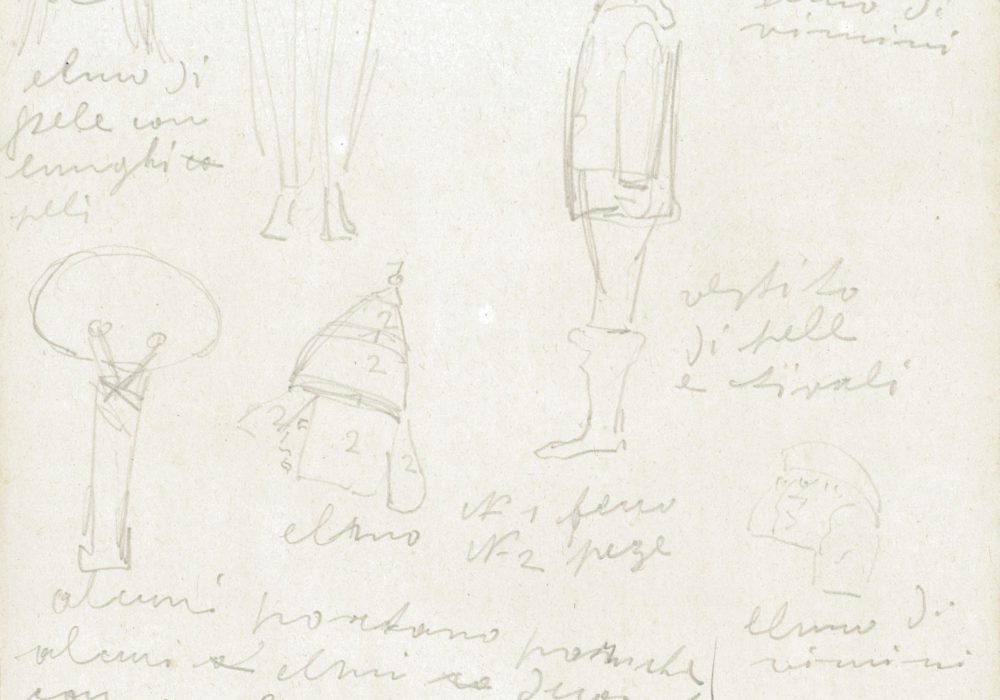 elmo di
vimini
elmo di
pele con
lunghi
peli
vestito
di pelle
e stivali
1
2
2
2
2
2
elmo
N 1 ferro
N 2 peze
elmo di
vimini
alcuni portano
alcuni elmi
con